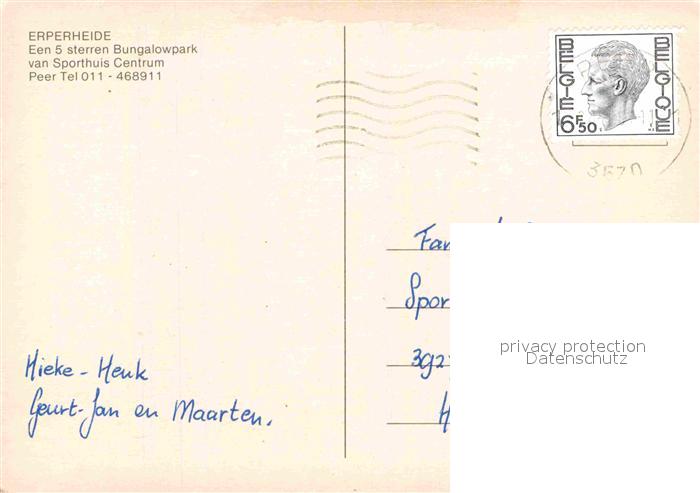 ERPERHEIDE
Een 5 sterren Bungalowpark
van Sporthuis Centrum
Peer Tel 011 - 468911
BELGIE
BELGIQUE
6F50
3570
Fam
Spor
privacy protection
Datenschutz
Mieke - Henk
Geurt-Jan en Maarten.